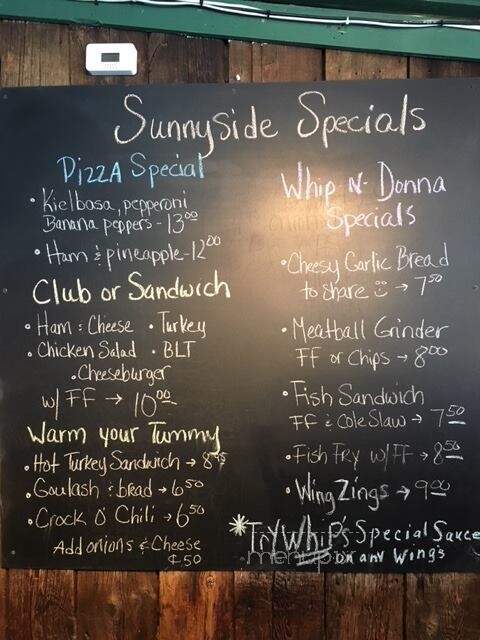 Sunnyside Specials
Pizza Special
• Kielbasa, pepperoni
Banana peppers - 13⁰⁰
• Ham & pineapple - 12⁰⁰
Club or Sandwich
• Ham & Cheese • Turkey
• Chicken Salad • BLT
• Cheeseburger
w/ FF → 10⁰⁰
Warm your Tummy
• Hot Turkey Sandwich → 8⁹⁵
• Goulash & bread → 6⁵⁰
• Crock O' Chili → 6⁵⁰
Add onions & Cheese
¢50
Whip N- Donna
Specials
• Cheesy Garlic Bread
to share → 7⁵⁰
• Meatball Grinder
FF or Chips → 8⁰⁰
• Fish Sandwich
FF & Cole Slaw → 7⁵⁰
• Fish Fry w/ FF → 8⁵⁰
• Wing Zings → 9⁰⁰
*Try Whip's Special Sauce
on any Wing's